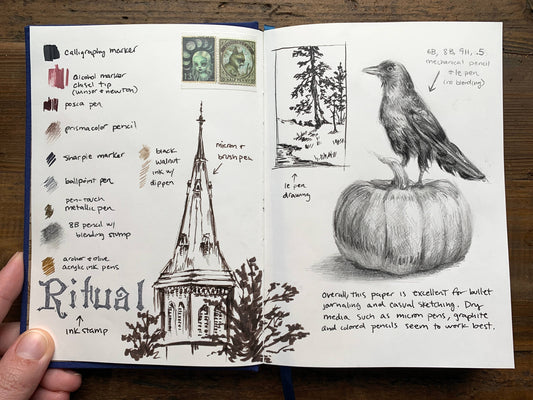 calligraphy marker
Alcohol marker
chisel tip
(winsor & newton)
posca pen
prismacolor pencil
sharpie marker
ballpoint pen
pen-touch
metallic pen
8B pencil w/
blending stump
archer & olive
acrylic ink pens
Ritual
ink stamp
black
walnut
ink w/
dip pen
micron &
brush pen
le pen
drawing
6B, 8B, 9H, .5
mechanical pencil
& le pen
(no blending)
Overall, this paper is excellent for bullet
journaling and casual sketching. Dry
media such as micron pens, graphite
and colored pencils seem to work best.